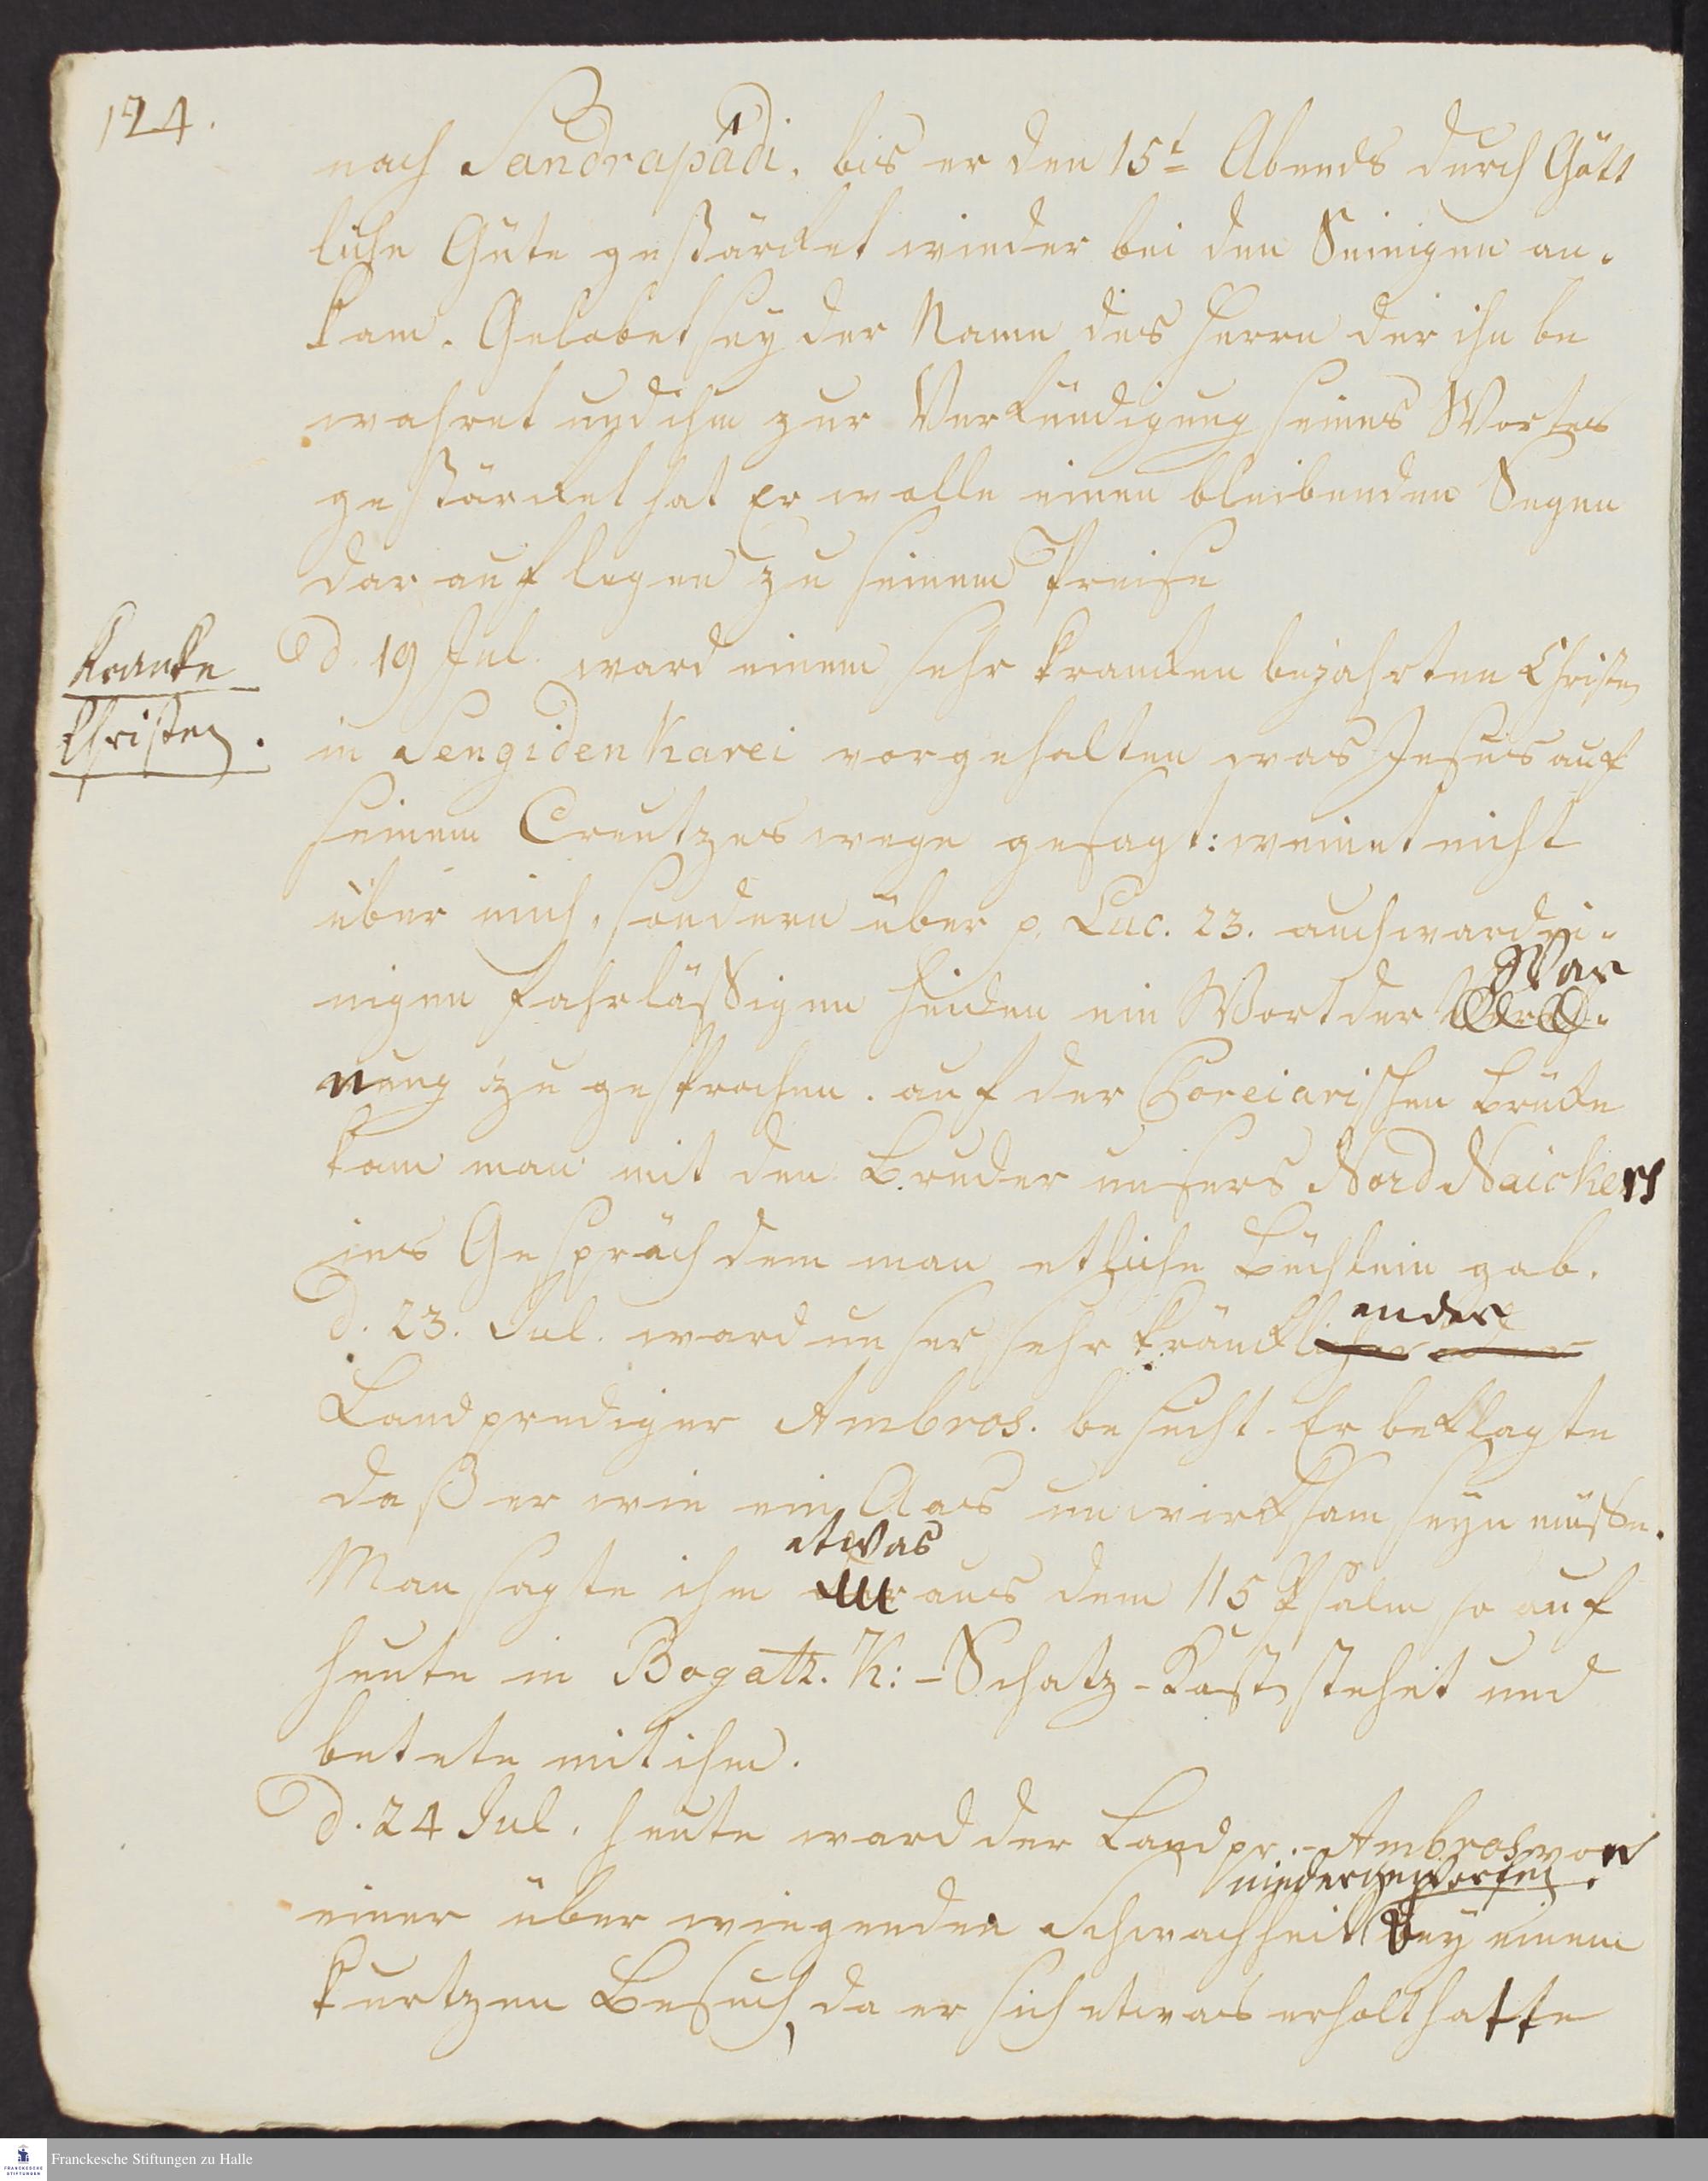 124.
nach Sandrapádi, bis er den 15t Abends durch Gött
liche Güte gestärcket wieder bei den Seinigen an-
kam. Gelobet sey der Name des Herrn der ihn be
wahret und ihn zur Verkündigung seines Wortes
gestärcket hat Er wolle einen bleibenden Segen
darauf legen zu seinem Preise
Krancke
Christen.
d. 19 Jul. ward einem sehr krancken bejahrten Christen
in Sengidenkarei vorgehalten was Jesus auf
seinem Creutzes wege gesagt: weinet nicht
über mich, sondern über p. Luc. 23. auch ward ei-
nigen fahrläßigen Heiden ein Wort der War
nung zu gesprochen. auf der Poreiarischen Brücke
kam man mit den Bruder unsers Nord Naickers
ins Gespräch dem man etliche Büchlein gab.
d. 23. Jul. ward unser sehr kränckl ender
Landprediger Ambros. besucht. Er beklagte
daß er wie ein Aas unwircksam seyn müße.
etwas
Man sagte ihm aus dem 115 Psalm so auf
heute in Bogatz. K: - Schatz - Kästn stehet und
betete mit ihm.
d. 24 Jul. heute ward der Landpr. - Ambros von
niedergeworfen.
einer über wiegenden Schwachheit bey einem
kurtzen Besuch, da er sich etwas erholt hatte
Franckesche Stiftungen zu Halle